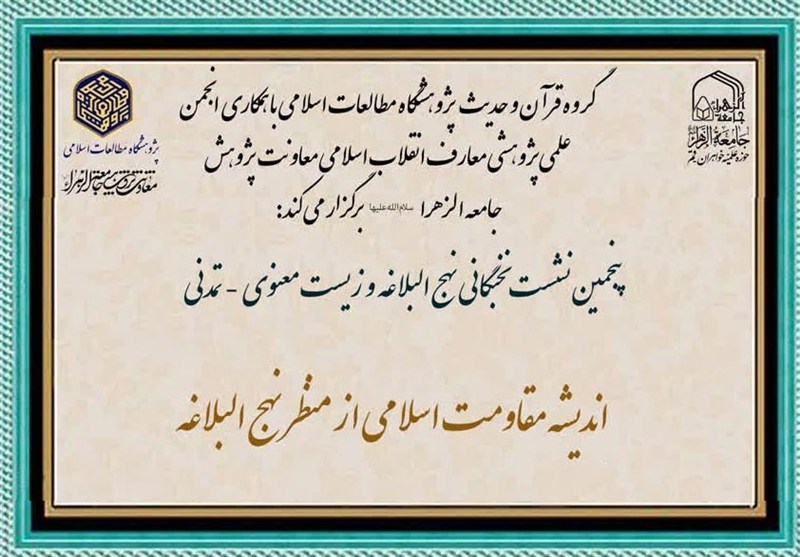 گروه قرآن و حدیث پژوهشگاه مطالعات اسلامی با همکاری انجمن
علمی پژوهشی معارف انقلاب اسلامی معاونت پژوهش
جامعه الزهرا سلام‌الله‌علیها برگزار می کند:
پنجمین نشست نخبگانی نهج البلاغه و زیست معنوی - تمدنی
اندیشه مقاومت اسلامی از منظر نهج البلاغه
جامعة الزهرا
حوزه علمیه خواهران قم
پژوهشگاه مطالعات اسلامی
معاونت پژوهش جامعة الزهرا